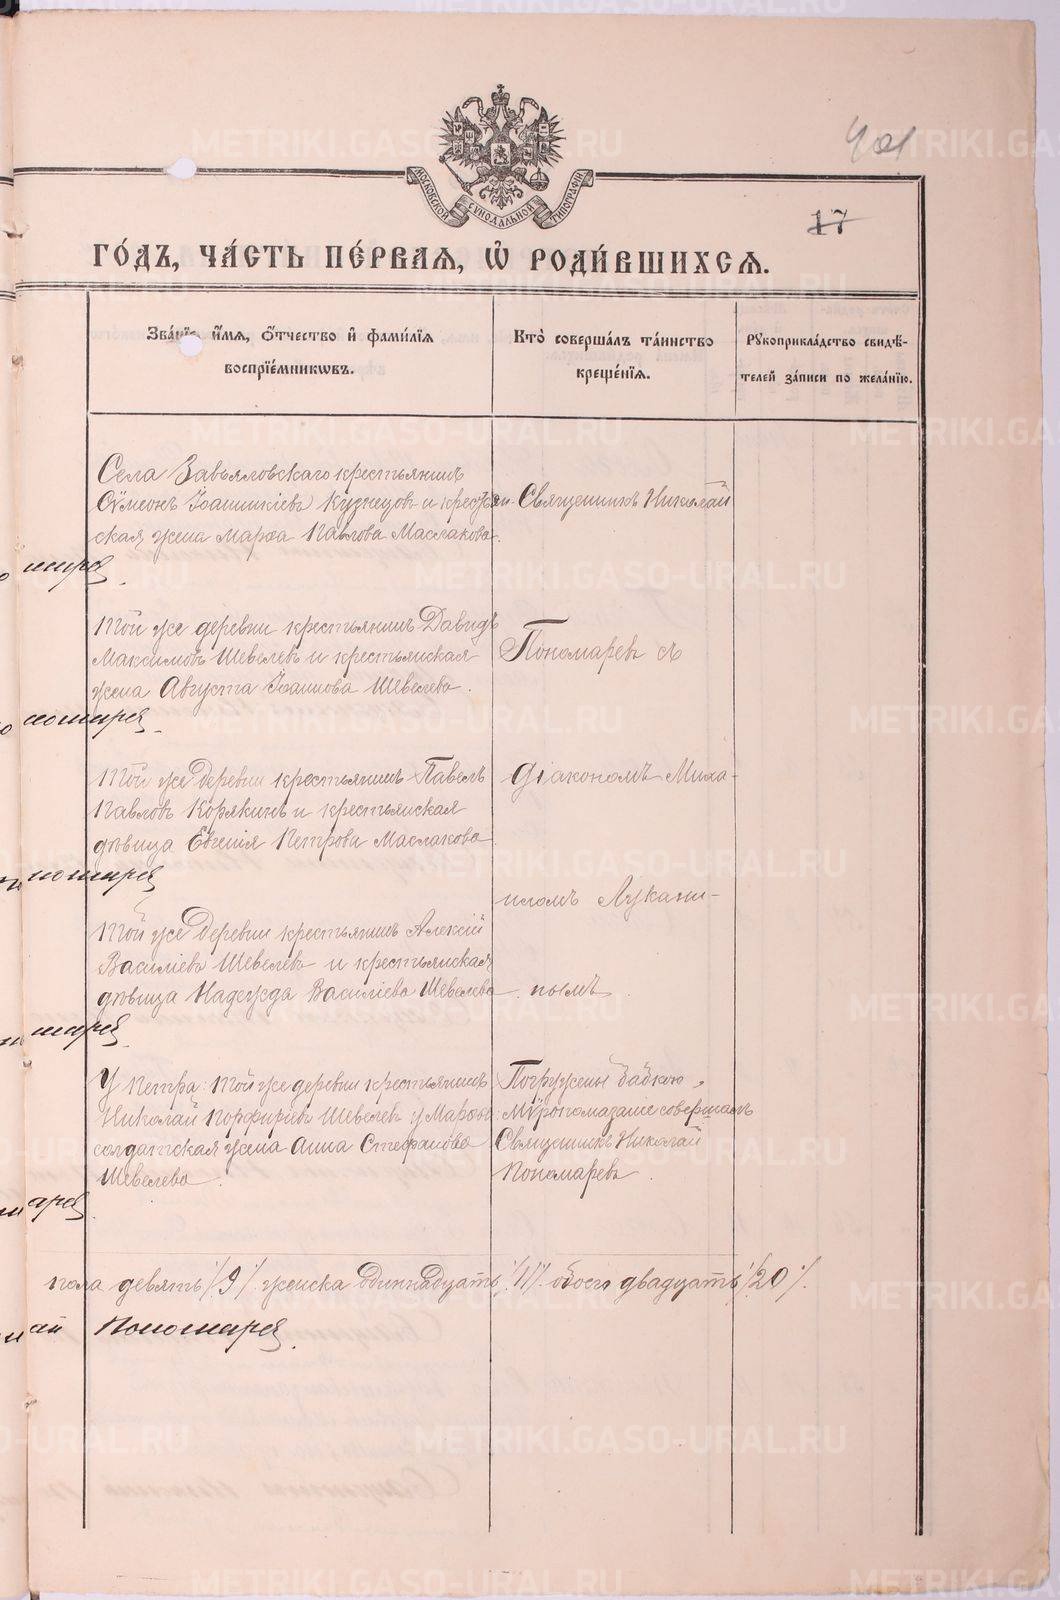 METRIKI.GASO-URAL.RU
401
МОСКОВСКОЙ СѴНОДАЛЬНОЙ ТИПОГРАФІИ
17
ГО́ДЪ, ЧА́СТЬ ПЕ́РВАѦ, Ѡ҆ РОДИ́ВШИХСѦ.
Зва́нїе, и҆́мѧ, ѻ҆́тчество и҆ фами́лїѧ
воспрїе́мникѡвъ.
Кто̀ соверша́лъ та́инство
креще́нїѧ.
Рꙋкоприкла́дство свидѣ́-
телей за́писи по жела́нїю.
Села Завьяловскаго крестьянинъ
Сѵмеонъ Іоанникіевъ Кузнецовъ и крестьян-
ская жена Марѳа Павлова Маслакова.
Священникъ Николай
Той же деревни крестьянинъ Давидъ
Максимовъ Шевелевъ и крестьянская
жена Августа Іоаннова Шевелева.
Пономаревъ съ
Той же деревни крестьянинъ Павелъ
Павловъ Корякинъ и крестьянская
дѣвица Евгенія Петрова Маслакова
діакономъ Миха-
иломъ Лукани-
Той же деревни крестьянинъ Алексій
Василіевъ Шевелевъ и крестьянская
дѣвица Надежда Василіева Шевелева
нымъ
У Петра: Той же деревни крестьянинъ
Николай Порфиріевъ Шевелевъ у Марѳы:
солдатская жена Анна Стефанова
Шевелева.
Погружены бабкою,
Мѵропомазаніе совершалъ
Священникъ Николай
Пономаревъ.
пола девять /9/. женска одиннадцать /11/. обоего двадцать /20/.
Пономаревъ.